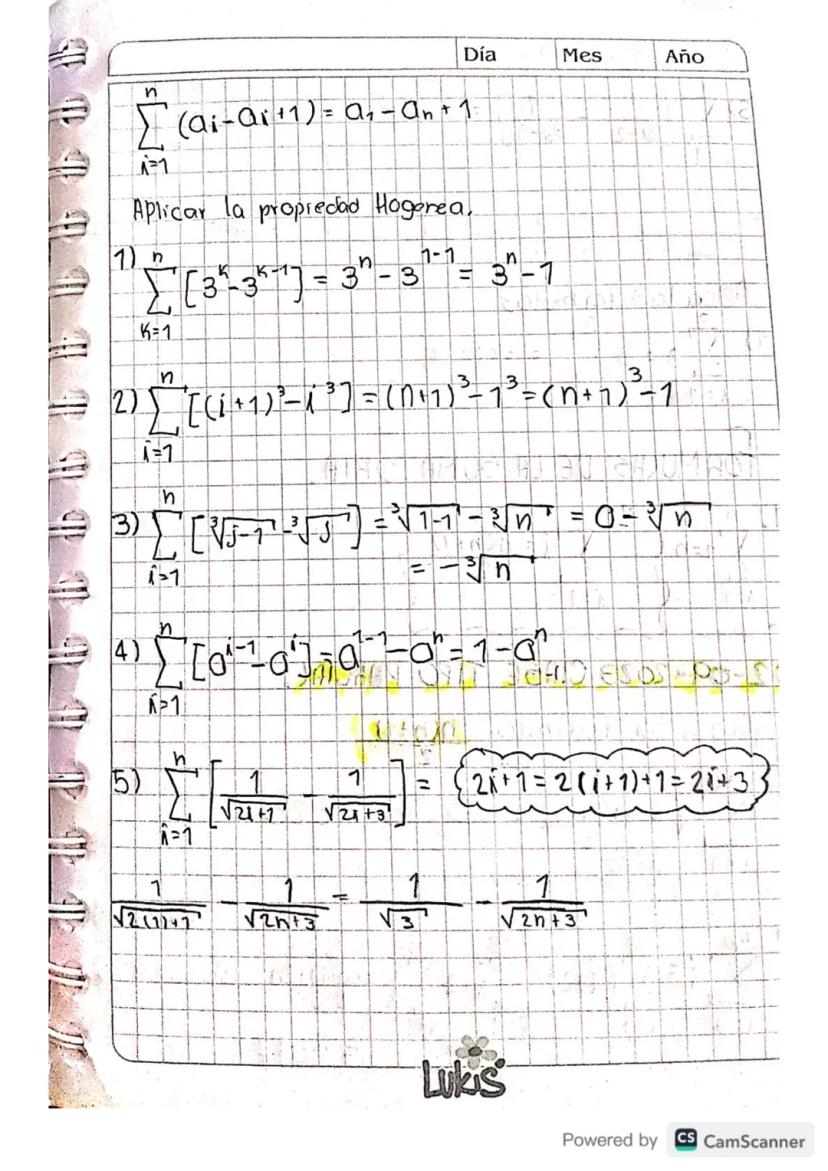 Día Mes Año
n
∑ (ai-ai+1) = a1 - an + 1
i=1
Aplicar la propiedad Hogorea.
1) n
∑ [3^k-3^k-1] = 3^n - 3^1-1 = 3^n - 1
K=1
n
2) ∑ [(i+1)^3 - i^3] = (n+1)^3 - 1^3 = (n+1)^3 - 1
i=1
n
3) ∑ [∛j-1 - ∛j] = ∛1-1 - ∛n = 0 - ∛n
i=1 = - ∛n
n
4) ∑ [a^i-1 - a^i] = a^1-1 - a^n = 1 - a^n
i=1
n
5) ∑ [1/√2i+1 - 1/√2i+3] = 2i+1 = 2(i+1)+1 = 2i+3
i=1
1/√2(1)+1 - 1/√2n+3 = 1/√3 - 1/√2n+3
Lukis
Powered by CS CamScanner